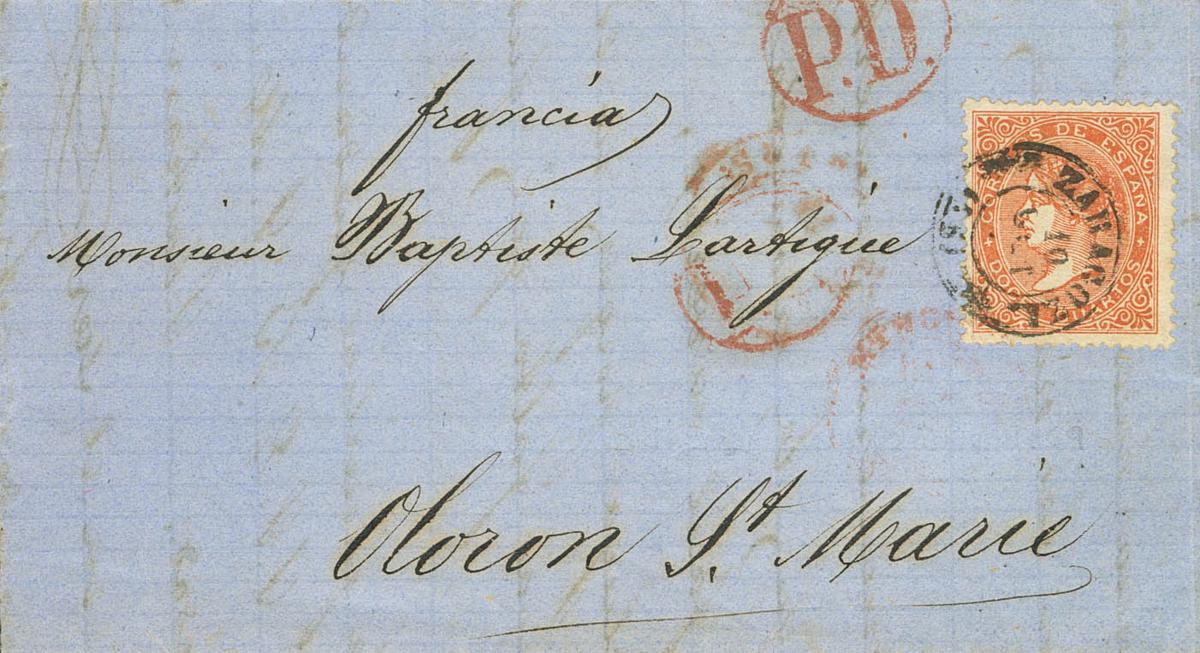 P.D.
francia
Monsieur Baptiste Lartigue
CORREOS DE ESPAÑA
DOCE CUARTOS
ZARAGOZA
Oloron St Marie